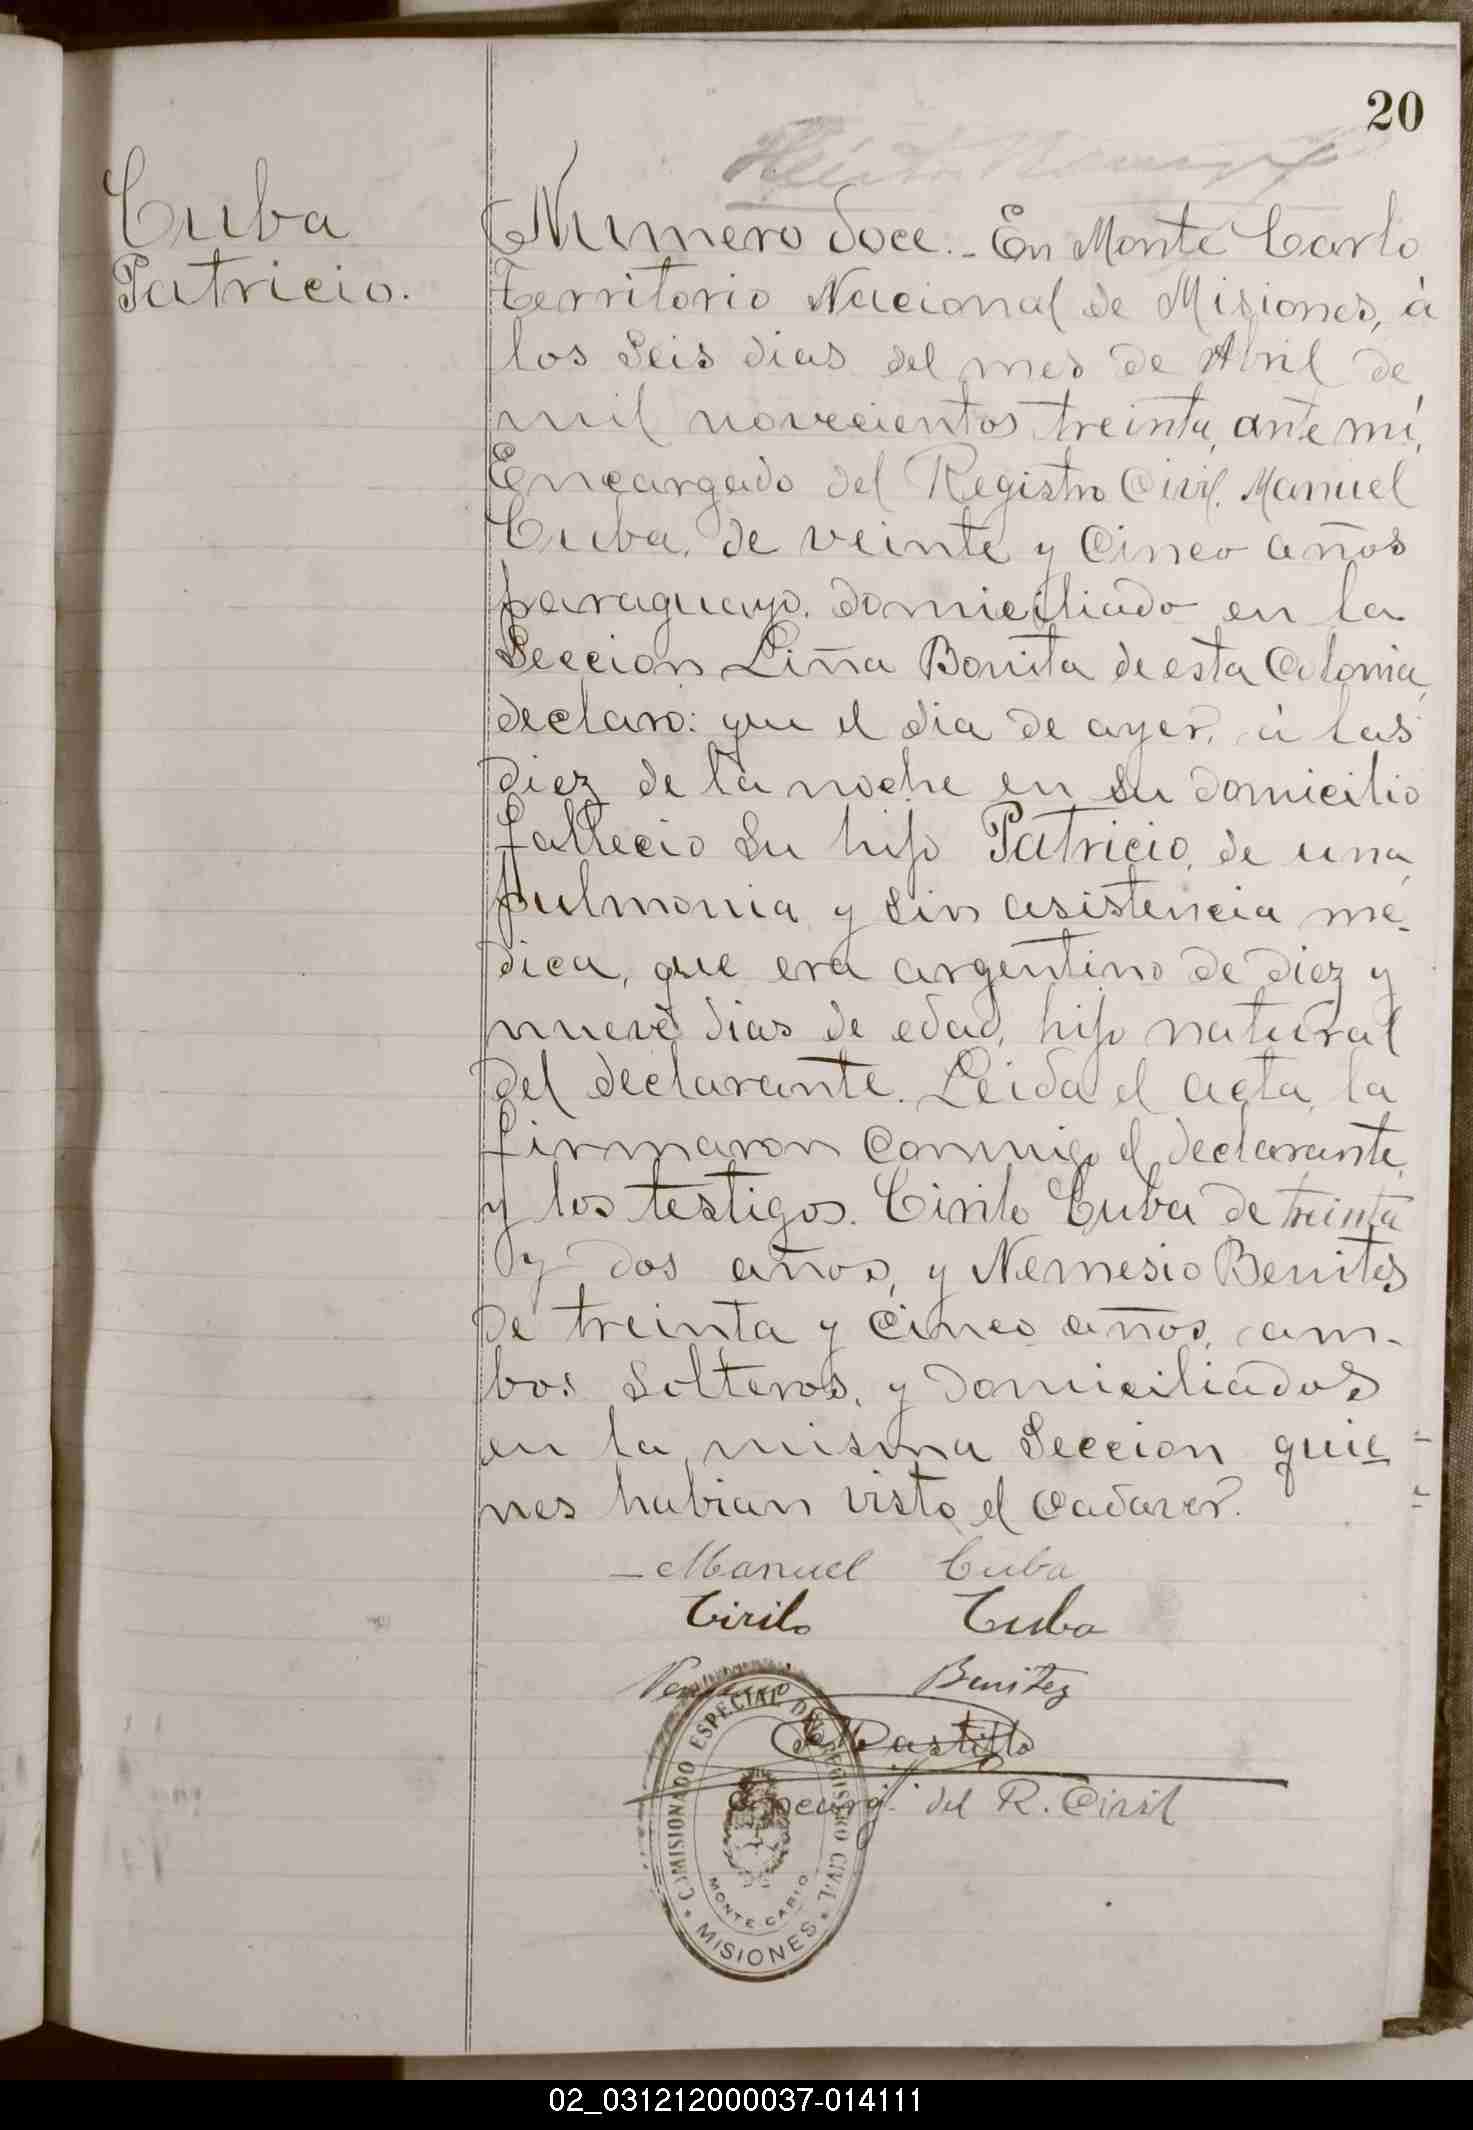 20
Cuba
Patricio.
Numero doce.- En Monte Carlo
Territorio Nacional de Misiones, á
los seis dias del mes de Abril de
mil novecientos treinta, ante mí,
Encargado del Registro Civil, Manuel
Cuba, de veinte y cinco años
paraguayo, domiciliado en la
Seccion Liña Bonita de esta Colonia,
declaro: que el dia de ayer, á las
diez de la noche en su domicilio
fallecio su hijo Patricio, de una
pulmonia y sin asistencia mé-
dica, que era argentino de diez y
nueve dias de edad, hijo natural
del declarante. Leida el acta, la
firmaron conmigo el declarante,
y los testigos. Cirilo Cuba de treinta
y dos años, y Nemesio Benites
de treinta y cinco años, am-
bos solteros, y domiciliados
en la misma Seccion quie=
nes habian visto el cadaver.=
Manuel Cuba
Cirilo Cuba
Benitez
Castillo
Encarg. del R. Civil
COMISIONADO ESPECIAL DEL REGISTRO CIVIL
MONTE CARLO
* MISIONES *
02_031212000037-014111